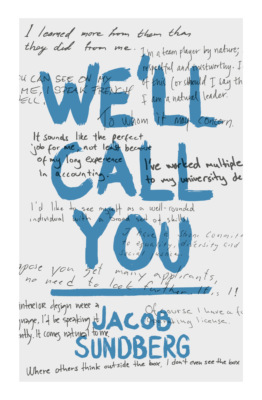 I learned more from them than
they did from me.
I'm a team player by nature;
YOU CAN SEE ON MY
ME, I SPEAK FRENCH
ELL.
I am a natural leader.
WE'LL
To whom it may concern.
It sounds like the perfect
job for me not least because
of my long experience
in accounting.
CALL
I've worked multiple
to my university de
I'd like to see myself as a well-rounded
individual with a broad set of skills
YOU
pose you get many applicants,
no need to look further. It's
interior design were a
Of course I have a
driving license.
guage, I'd be speaking it
ntly. It comes natural to me
JACOB
SUNDBERG
Where others think outside the box, I don't even see the box